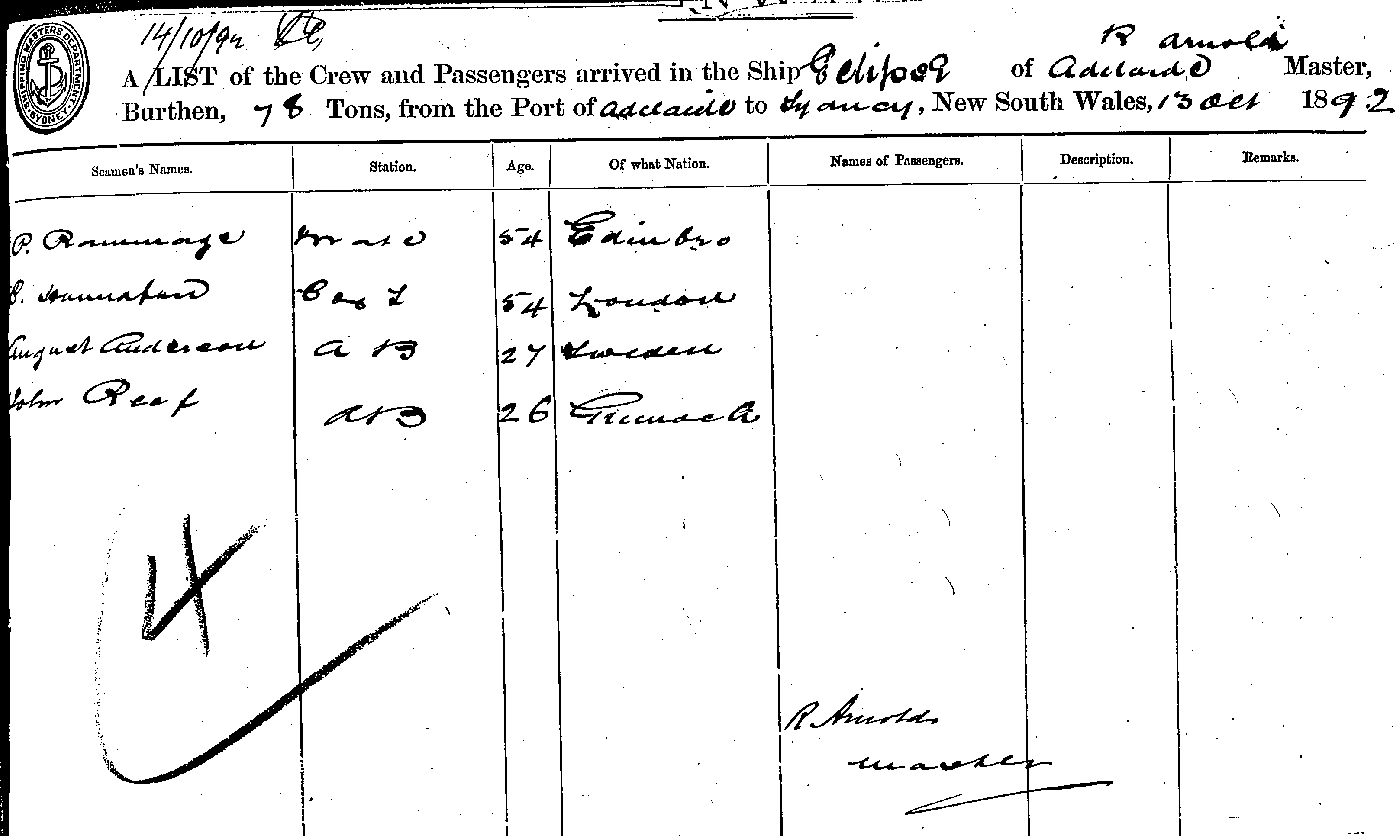 14/10/92
R Arnold
A LIST of the Crew and Passengers arrived in the Ship Eclipse of Adelaide Master,
Burthen, 78 Tons, from the Port of Adelaide to Sydney, New South Wales, 13 Oct 1892
SHIPPING MASTERS DEPARTMENT SYDNEY
Seamen's Names. Station. Age. Of what Nation. Names of Passengers. Description. Remarks.
P. Rammage Mate 54 Edinbro
54 London
August Anderson A B 27 Sweden
John AB 26 Greenock
4
R. Arnold
Master